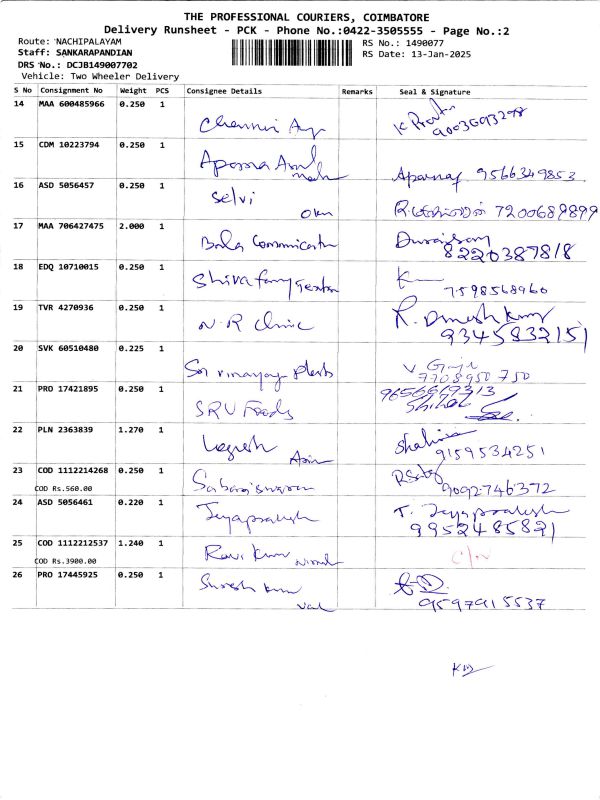 THE PROFESSIONAL COURIERS, COIMBATORE
Delivery Runsheet - PCK - Phone No.:0422-3505555 - Page No.:2
Route: NACHIPALAYAM RS No.: 1490077
Staff: SANKARAPANDIAN RS Date: 13-Jan-2025
DRS No.: DCJB149007702
Vehicle: Two Wheeler Delivery
S No Consignment No Weight PCS Consignee Details Remarks Seal & Signature
14 MAA 600485966 0.250 1
Chennai
15 CDM 10223794 0.250 1
Aparnaf 9566349853
16 ASD 5056457 0.250 1
Selvi
7200689899
17 MAA 706427475 2.000 1
Bala Communication Duraisamy
8220387818
18 EDQ 10710015 0.250 1
Shiva K
7598568960
19 TVR 4270936 0.250 1
N.R Clinic R. Dineshkumar
9345832151
20 SVK 60510480 0.225 1
Sri vinayaga V. Giri
7708950750
21 PRO 17421895 0.250 1
9656619313
SRV Foods
22 PLN 2363839 1.270 1
Logesh
9159534251
23 COD 1112214268 0.250 1
COD Rs.560.00
9092746372
24 ASD 5056461 0.220 1
Jeyaprakash T. Jeyaprakash
9952485821
25 COD 1112212537 1.240 1
COD Rs.3900.00
Ravi Kumar
26 PRO 17445925 0.250 1
Suresh kumar
9597915537